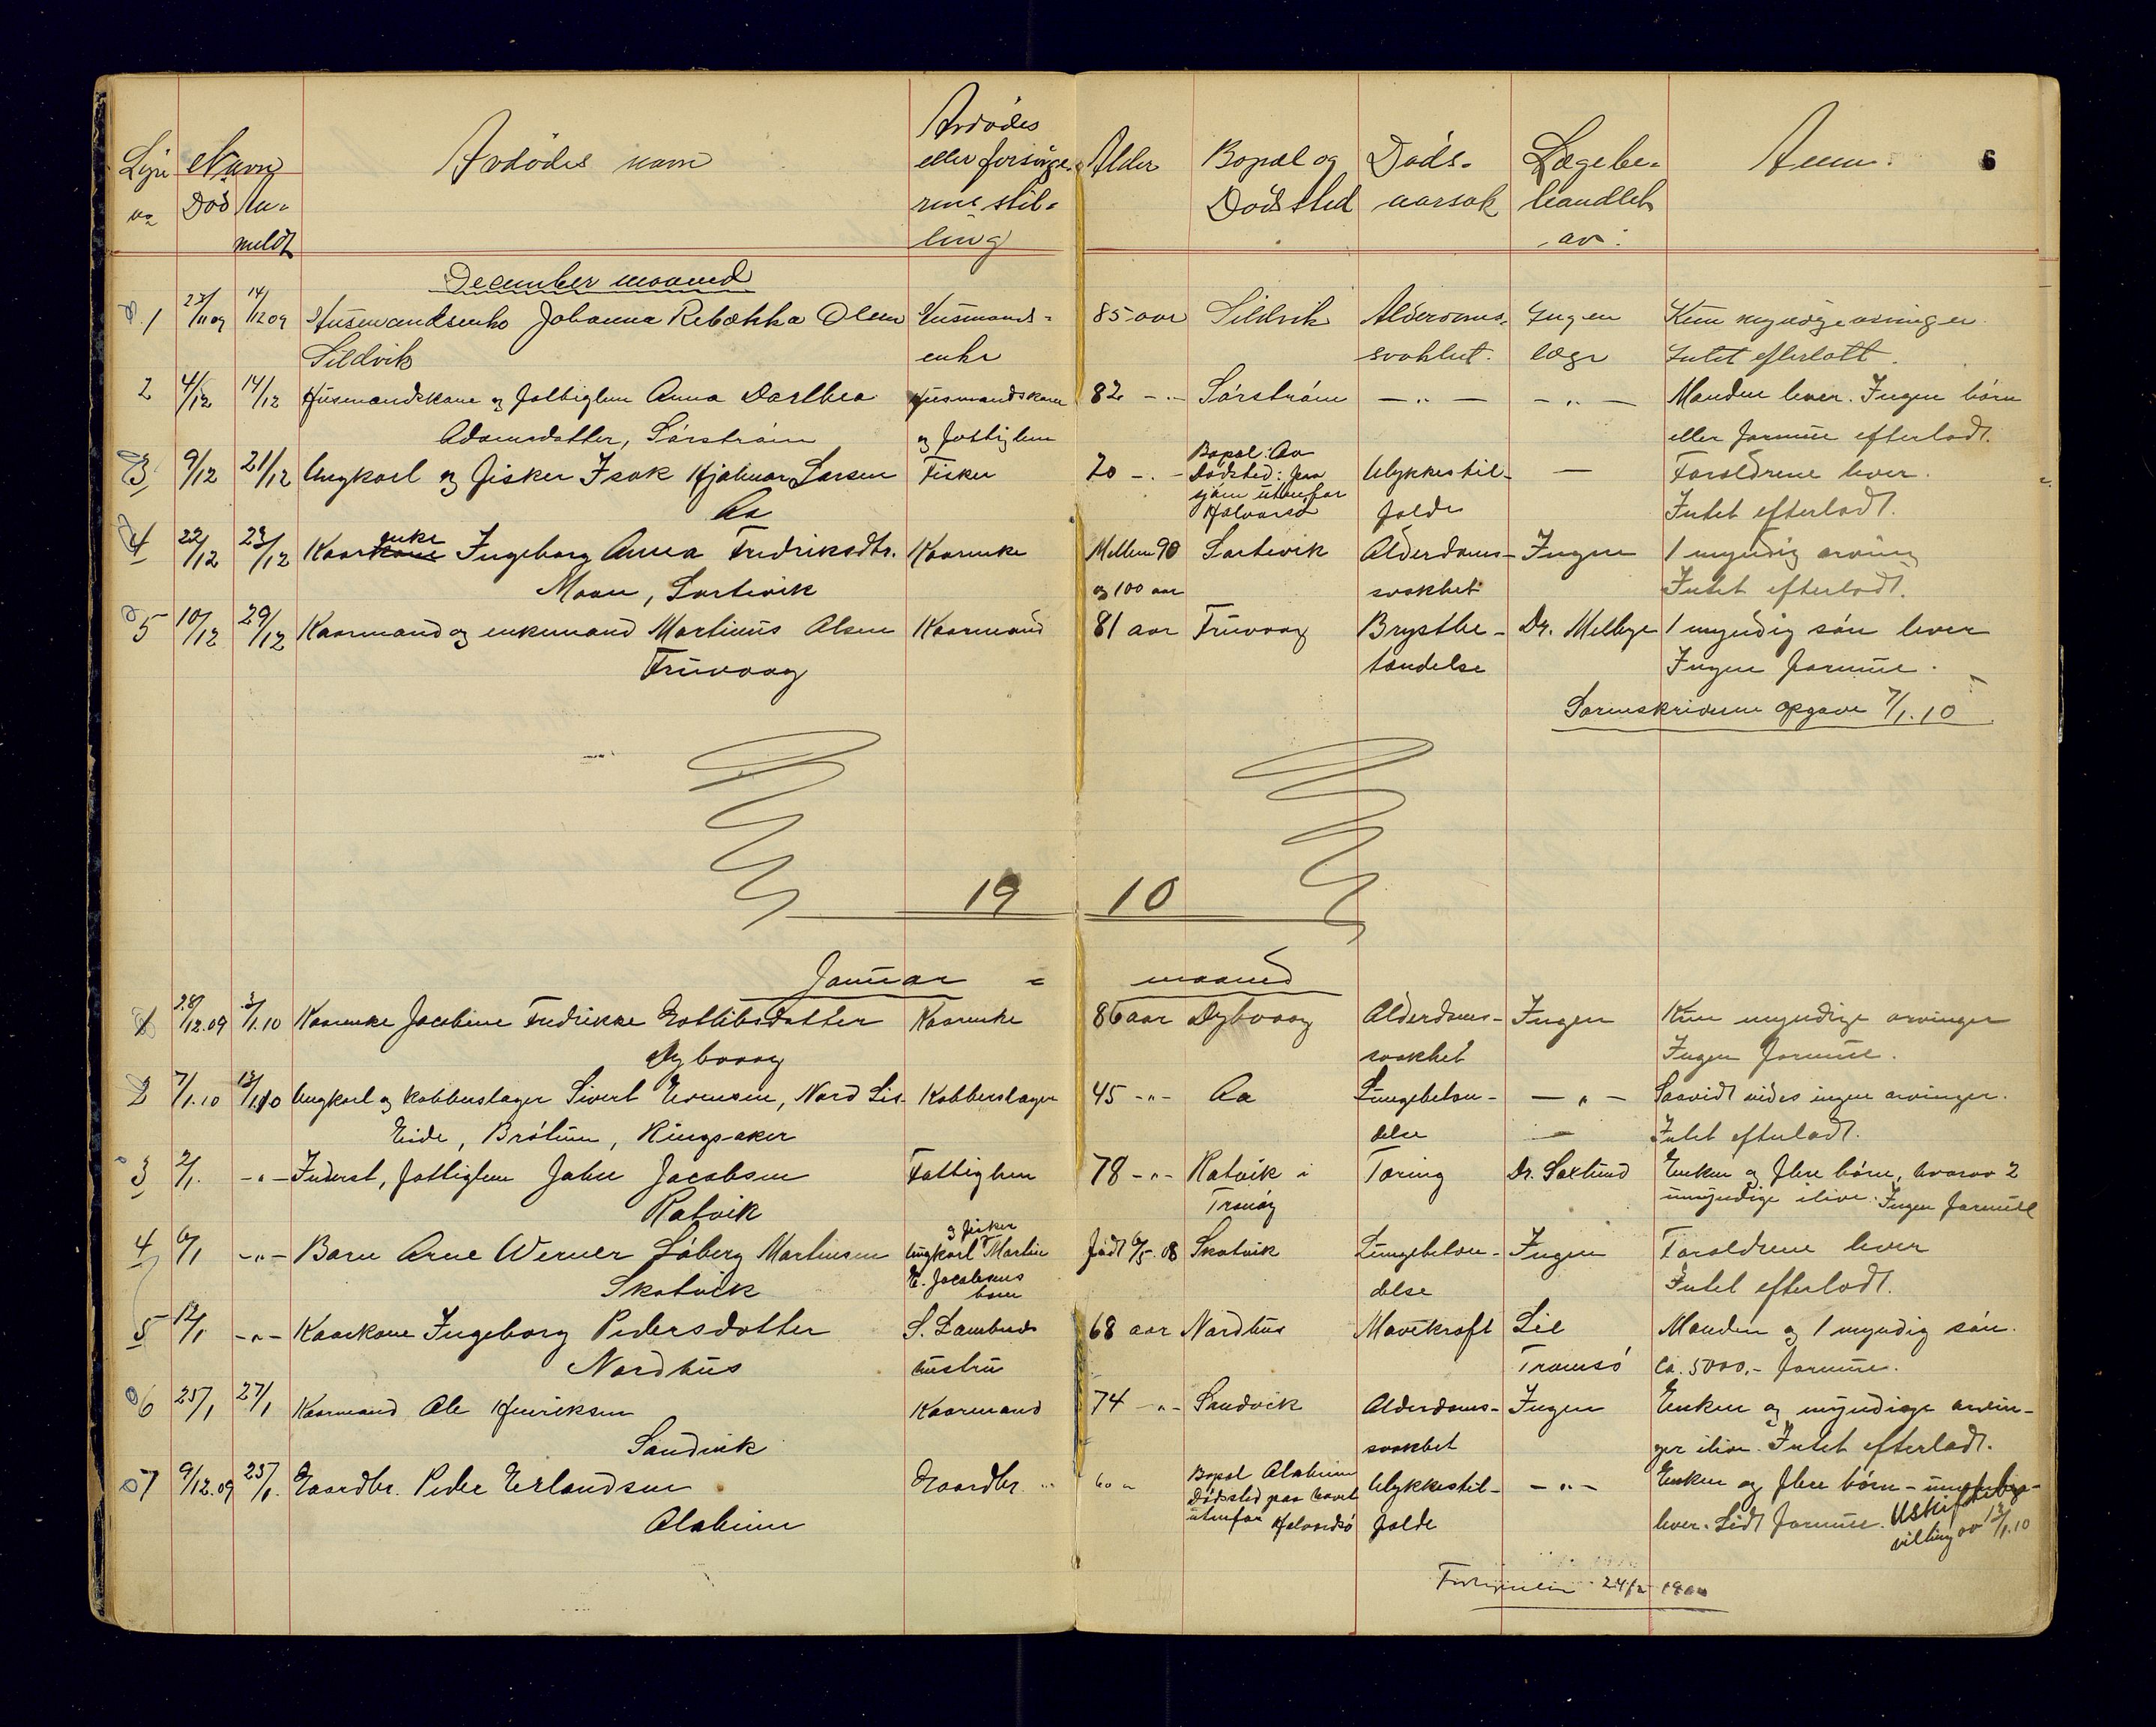 6
Løpe no
Navn
Død
An-meldt
Avdødes navn
Avdødes eller forsørge-rens stil-ling
Alder
Bopæl og Dødssted
Døds-aarsak
Lægebe-handlet av:
Anm.
December maaned
1 23/11 09 14/12 09 Husmandsenke Johanna Rebækka Olsen Husmands- 85 aar Sildvik Alderdoms- Ingen Kun myndige arvinger
Sildvik enke svakhet. læge Intet efterlatt.
2 4/12 14/12 Husmandskone og fattiglem Anna Dorthea Husmandskone 82 -"- Sørstrøm -"- -"- Manden lever. Ingen børn
Adamsdatter, Sørstrøm og fattiglem eller formue efterladt.
3 9/12 21/12 Ungkarl og fisker Isak Hjalmar Larsen Fisker 20 -"- Bopæl: Aa Dødssted: paa sjøen utenfor Ulykkestil- — Forældrene lever.
Aa Halvarsø falde Intet efterladt.
4 22/12 23/12 Kaarkone enke Ingeborg Anna Fredriksdtr. Kaarenke Mellem 90 Sørtevik Alderdoms- Ingen 1 myndig arving
Moan, Sørtevik og 100 aar svakhet Intet efterladt.
5 10/12 29/12 Kaarmand og enkemand Martinus Olsen Kaarmand 81 aar Truvaag Brystbe- Dr. Melbye 1 myndig søn lever
Truvaag tændelse Ingen formue.
Sorenskriveren opgave 7/1.10
19 10
Januar - maaned
1 28/12.09 3/1.10 Kaarenke Jacobine Fredrikke Gotlibsdatter Kaarenke 86 aar Dybvaag Alderdoms- Ingen Kun myndige arvinger
Dybvaag svakhet Ingen formue.
2 7/1.10 13/1.10 Ungkarl og kobberslager Sivert Evensen, Nord Lis- Kobberslager 45 -"- Aa Lungebetæn- -"- Saavidt vides ingen arvinger.
Eide, Brøtum, Ringsaker delse — Intet efterladt.
3 2/1. -"- Inderst, fattiglem John Jacobsen Fattiglem 78 -"- Rotvik i Tæring Dr. Saxlund Enken og flere børn, hvorav 2
Rotvik Tranøy umyndige ilive. Ingen formue
4 6/1 -"- Barn Arne Werner Søberg Martinsen Ungkarl og fisker Martin født 6/5.08 Skatvik Lungebetæn- Ingen Forældrene lever
Skatvik E. Jacobsens barn delse Intet efterladt.
5 12/1 -"- Kaarkone Ingeborg Pedersdatter S. Lambrects 68 aar Nordhus Mavekræft Lie Manden og 1 myndig søn.
Nordhus hustru Tromsø Ca. 5000,- formue.
6 25/1 27/1 Kaarmand Ole Henriksen Kaarmand 74 -"- Sandvik Alderdoms- Ingen Enken og myndige arvin-
Sandvik svakhet ger ilive. Intet efterladt.
7 9/12.09 25/1. Gaardbr. Peder Erlandsen Gaardbr. 60 " Bopæl Olaheim Dødssted paa havet Ulykkestil- -"- Enken og flere børn - umyndige -
Olaheim utenfor Halvardsø falde lever. Lidt formue. Uskiftebe-
villing av 13/1.10
24/2